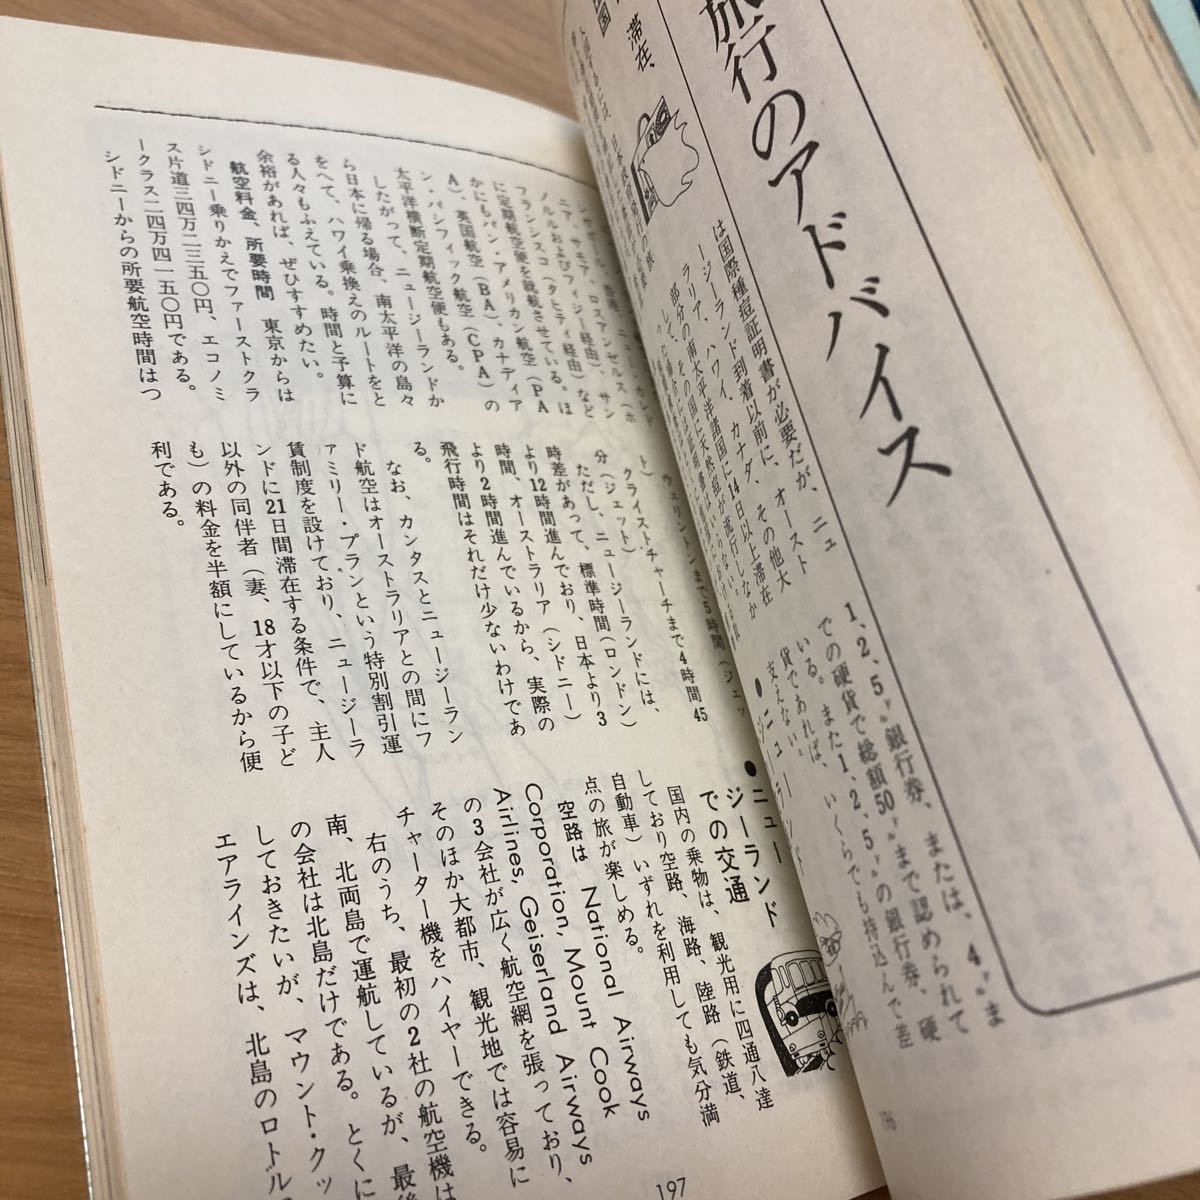 旅行のアドバイス
滞在、
は国際種痘証明書が必要だが、ニュ
ージーランド到着以前に、オースト
ラリア、ハワイ、カナダ、その他大
部分の南太平洋諸国に14日以上滞在
して、その国に天然痘が流行しなか
1、2、5ドル銀行券、または、4ドルま
での硬貨で総額50ドルまで認められて
いる。また1、2、5ドルの銀行券、硬
貨であれば、いくらでも持込んで差
支えない。
●ニュージーランド
196
ニア、サモア、ロスアンゼルス（ホ
ノルルおよびフィジー経由）、サン
フランシスコ（タヒティ経由）など
に定期航空便を就航させている。ほ
かにもパン・アメリカン航空（PA
A）、英国航空（BA）、カナディア
ン・パシフィック航空（CPA）の
太平洋横断定期航空便もある。
したがって、ニュージーランドか
ら日本に帰る場合、南太平洋の島々
をへて、ハワイ乗換えのルートをと
る人々もふえている。時間と予算に
余裕があれば、ぜひすすめたい。
航空料金、所要時間　東京からは
シドニー乗りかえでファーストクラ
ス片道三四万二三五〇円、エコノミ
ークラス二四万四一五〇円である。
シドニーからの所要航空時間はつ
ウェリントンまで5時間（ジェッ
ト）
クライストチャーチまで4時間45
分（ジェット）
ただし、ニュージーランドには、
時差があって、標準時間（ロンドン）
より12時間進んでおり、日本より3
時間、オーストラリア（シドニー）
より2時間進んでいるから、実際の
飛行時間はそれだけ少ないわけであ
る。
なお、カンタスとニュージーラン
ド航空はオーストラリアとの間にフ
ァミリー・プランという特別割引運
賃制度を設けており、ニュージーラ
ンドに21日間滞在する条件で、主人
以外の同伴者（妻、18才以下の子ど
も）の料金を半額にしているから便
利である。
●ニュージーランド
での交通
国内の乗物は、観光用に四通八達
しており空路、海路、陸路（鉄道、
自動車）いずれを利用しても気分満
点の旅が楽しめる。
空路は National Airways
Corporation, Mount Cook
Airlines, Geiserland Airways
の3会社が広く航空網を張っており、
そのほか大都市、観光地では容易に
チャーター機をハイヤーできる。
右のうち、最初の2社の航空機は
南、北両島で運航しているが、最後
の会社は北島だけである。とくに
しておきたいが、マウント・クッ
エアラインズは、北島のロトル
197